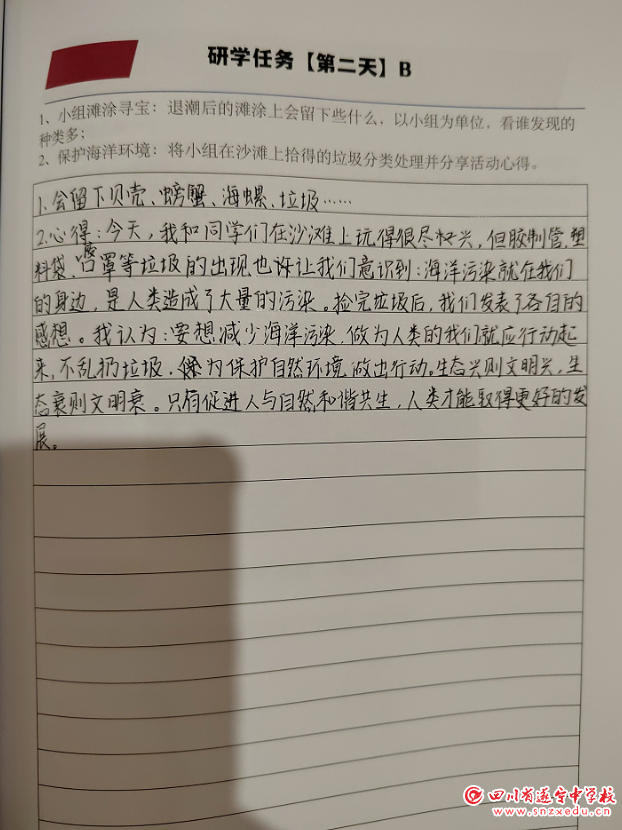 研学任务【第二天】B
1、小组滩涂寻宝：退潮后的滩涂上会留下些什么，以小组为单位，看谁发现的
种类多；
2、保护海洋环境：将小组在沙滩上拾得的垃圾分类处理并分享活动心得。
1.会留下贝壳、螃蟹、海螺、垃圾……
2.心得：今天，我和同学们在沙滩上玩得很尽兴，但胶制管，塑
料袋，口罩等垃圾的出现也许让我们意识到：海洋污染就在我们
的身边，是人类造成了大量的污染。捡完垃圾后，我们发表了各自的
感想。我认为：要想减少海洋污染，做为人类的我们就应行动起
来，不乱扔垃圾，为保护自然环境做出行动。生态兴则文明兴，生
态衰则文明衰。只有促进人与自然和谐共生，人类才能取得更好的发
展。
四川省遂宁中学校
www.snzxedu.cn